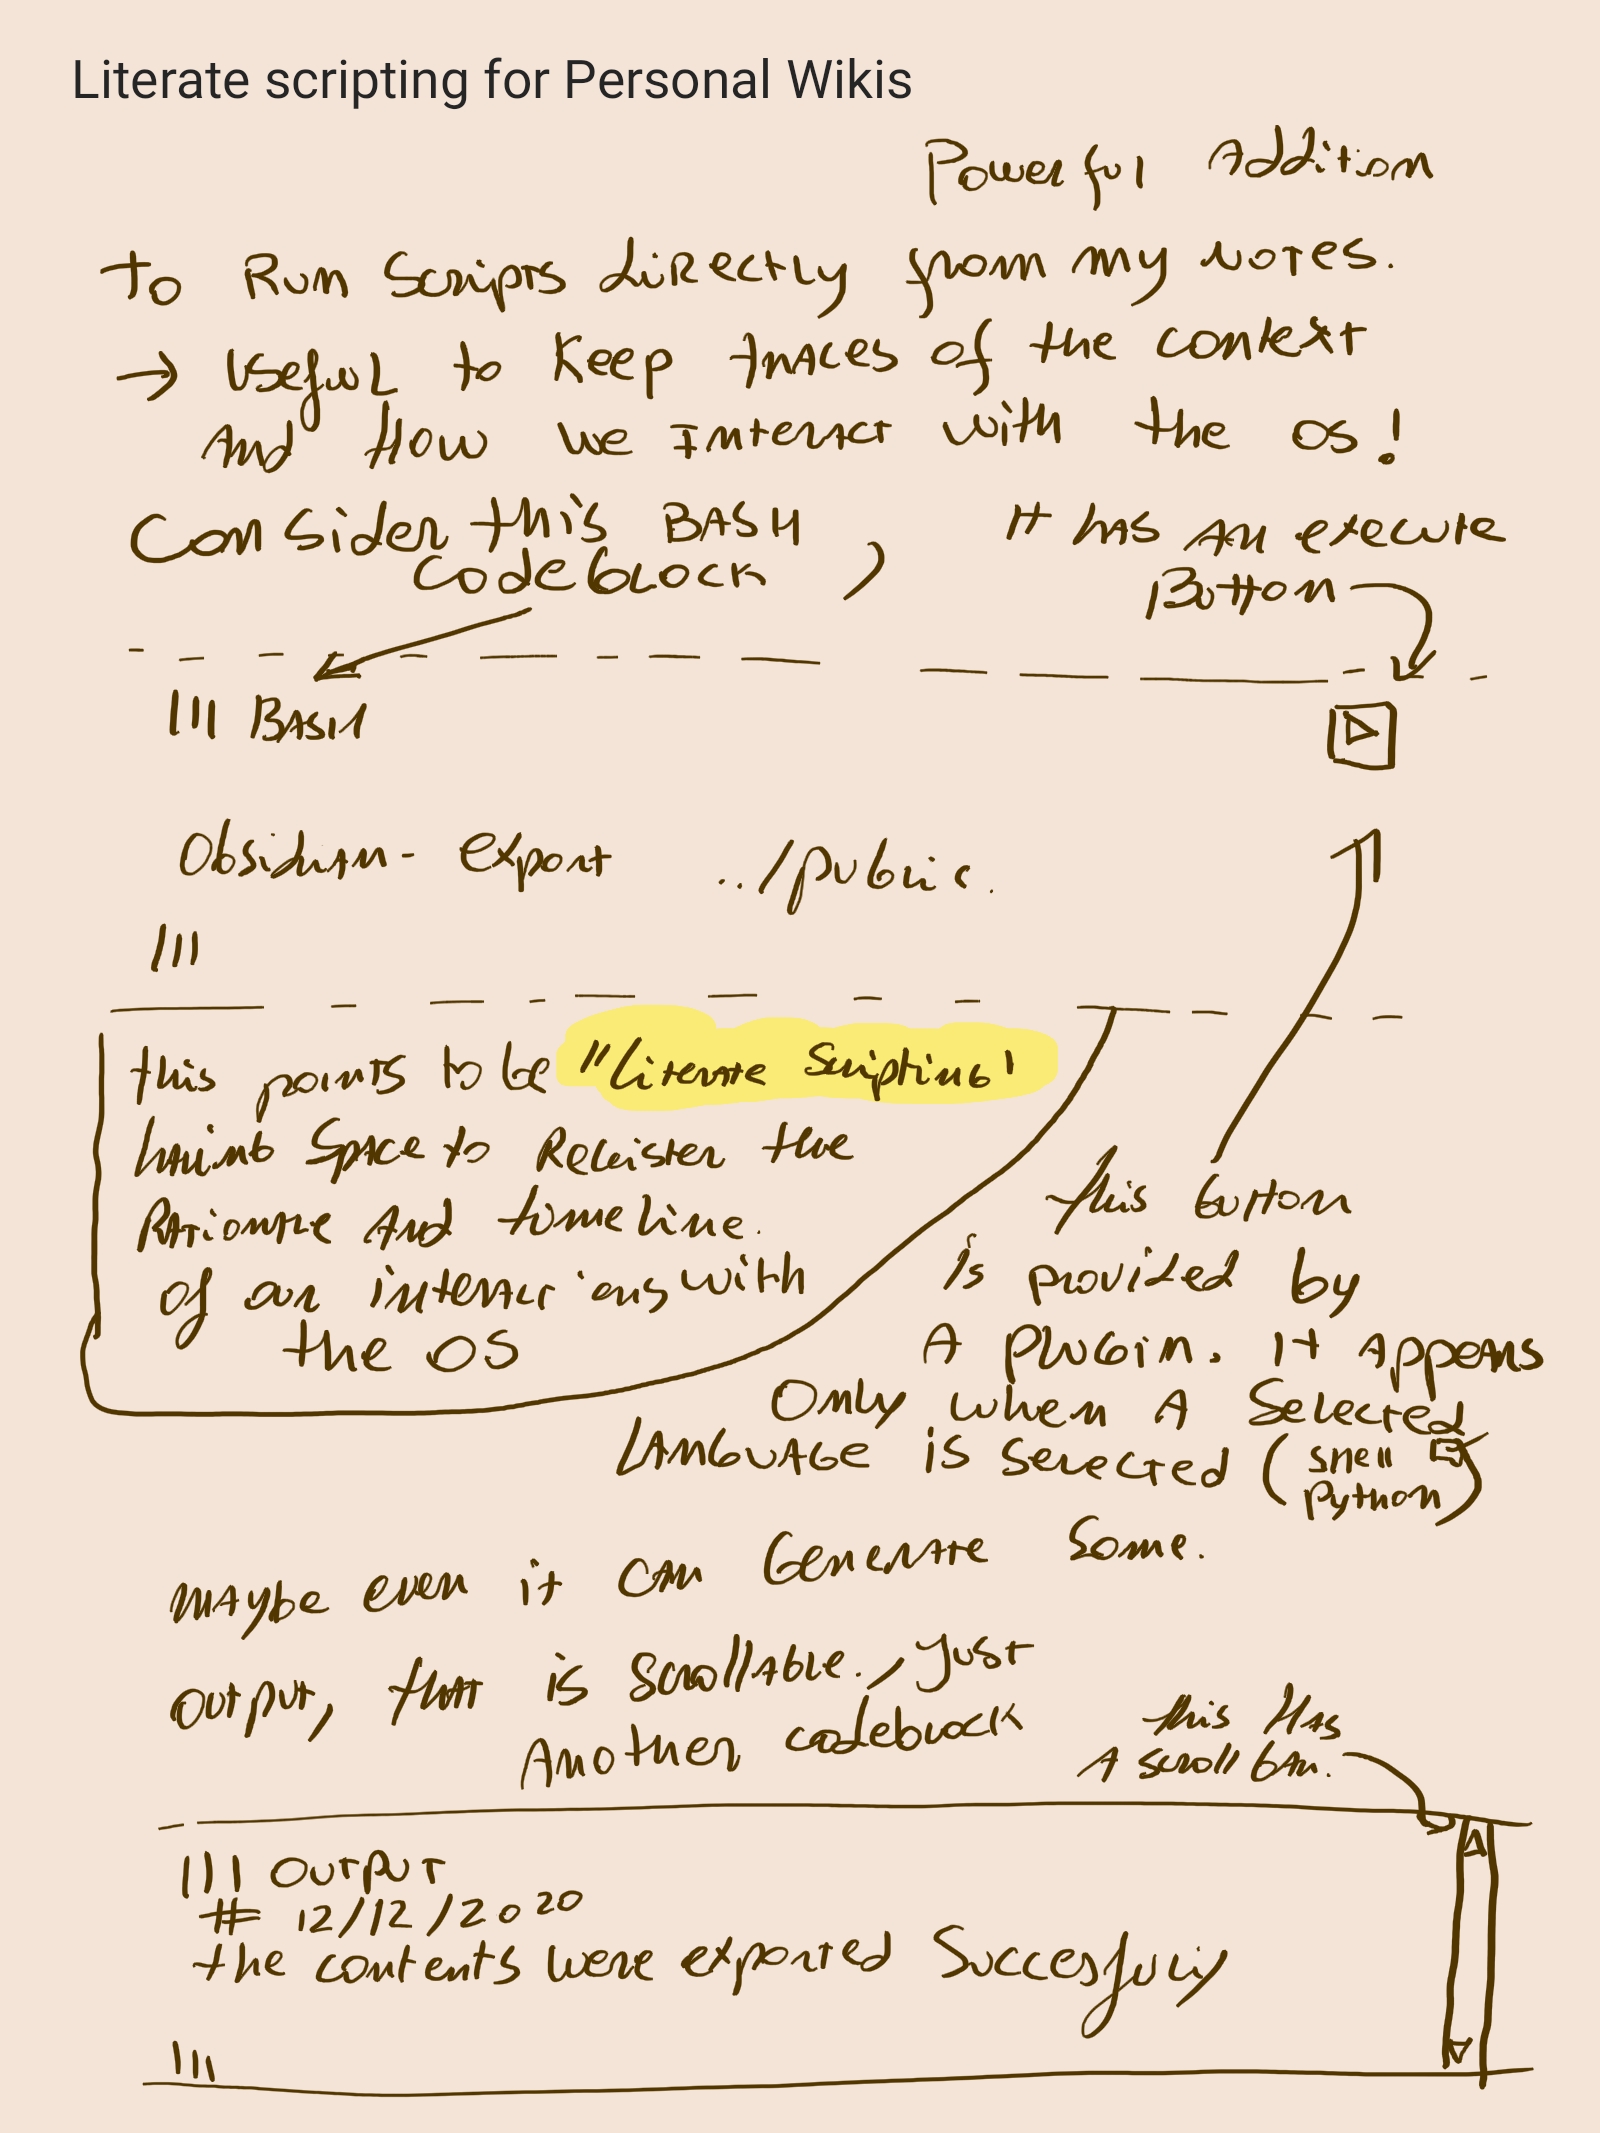 Literate scripting for Personal Wikis
Powerful Addition
to Run Scripts directly from my notes.
→ Useful to Keep traces of the context
And How we Interact with the OS!
Consider this BASH
codeblock ,
It has an execute
Button
||| BASH
Obsidian-export ../public.
|||
this points to be "Literate Scripting"
having Space to Register the
Rationale And timeline.
of our interactions with
the OS
this button
is provided by
A plugin. It appears
Only when A Selected
LANGUAGE is selected (shell
python)
maybe even it can Generate Some.
output, that is scrollable., Just
Another codeblock
this Has
A scroll bar.
||| OUTPUT
# 12/12/2020
the contents were exported Succesfully
|||